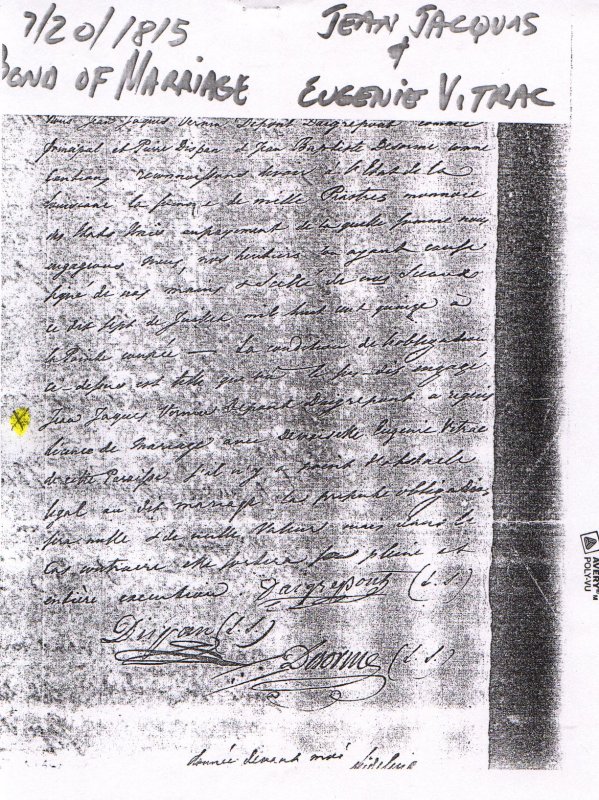 7/20/1815 JEAN JACQUES
BOND OF MARRIAGE & EUGENIE VITRAC
Nous Jean Jaques Vernou Dépont Daigrepont comme
Principal et Pierre Dispan et Jean Baptiste Desorme comme
Cautions, reconnaissons devoir à l'Etat de la
Louisiane la somme de mille Piastres monnaie
des Etats Unis, au payement de laquelle somme nous
engageons nous, nos héritiers en ayant cause
signé de nos mains & scellé de nos Sceaux
ce dix sept de Juillet mil huit cent quinze à
la Pointe coupée — La condition de l'obligation
ci-dessus est telle que
Jean Jaques Vernou Dépont Daigrepont a requis
licence de Mariage avec Demoiselle Eugenie Vitrac
de cette Paroisse S'il n'y a point d'obstacle
légal au dit mariage la présente obligation
sera nulle & de nulle valeur mais dans le
Cas contraire elle portera sous pleine et
entière exécution Daigrepont (L.S.)
Dispan (L.S.)
Desorme (L.S.)
Donnée devant moi
AVERY
POLY-VU